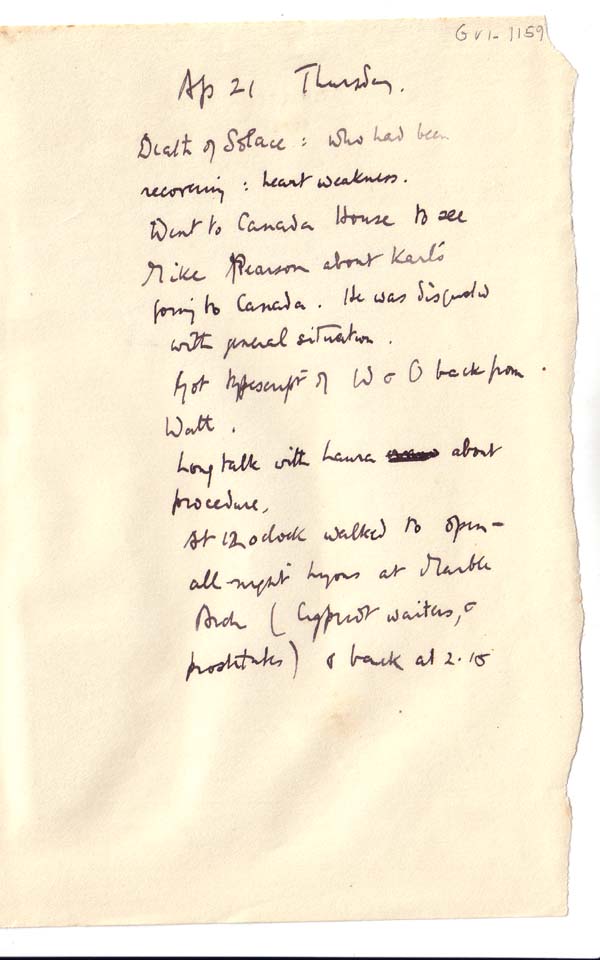 GVI-1159
Ap 21 Thursday.
Death of Solace : who had been
recovering : heart weakness.
Went to Canada House to see
Mike Pearson about Karl's
going to Canada. He was disgusted
with general situation.
Got typescript of W & O back from
Watt.
Long talk with Laura about
procedure,
At 12 oclock walked to open-
all-night Lyons at Marble
Arch (Cypriot waiters, &
prostitutes) & back at 2.15